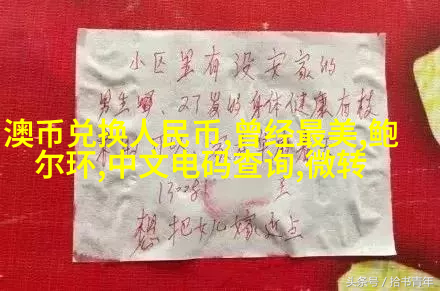 小区里有没安家的
男生吗、27岁的身体健康有枝
澳币兑换人民币,曾经最美,鲍
尔环,中文电码查询,微转
想把女儿嫁近点
头条号/拾书青年